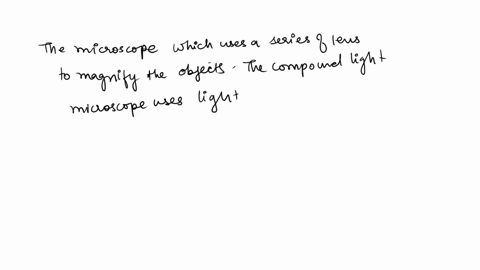 The microscope which uses a series of lens
to magnify the objects. The compound light
microscope uses light